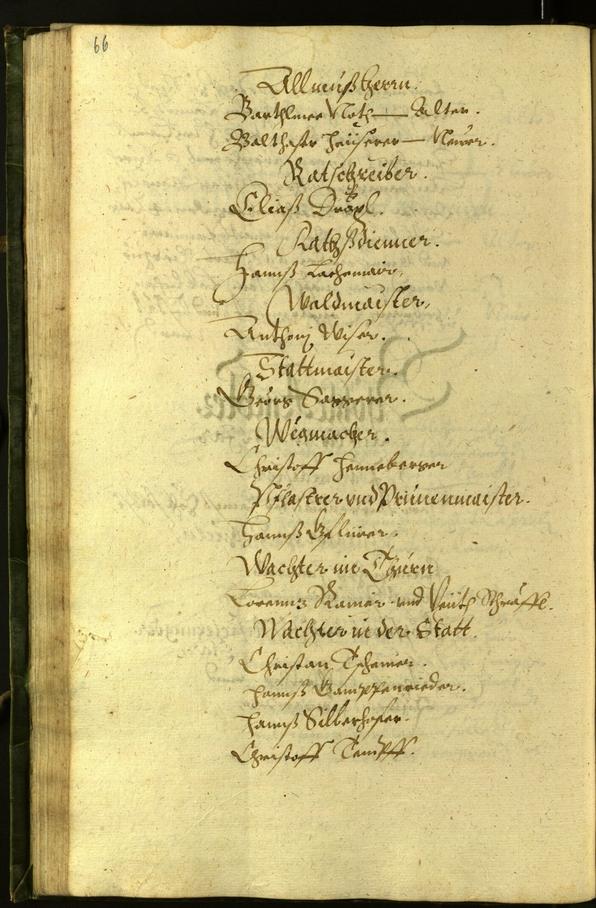 66
Allmußherrn.
Barthlmee Noth — Alter.
Balthasr Heüserer — Newer.
Ratschreiber.
Eliaß Dräxl.
Rathßdienner.
Hannß Lachemair.
Waldmaister.
Anthonj Wiser.
Stattmaister.
Georg
Wegmacher.
Christoff Henneberger
Pflastrer vnd Prünenmaister.
Hannß Gfluier.
Wachter im Thurn
Lorenntz Ramer vnd Veith Schräffl.
Wachter in der Statt.
Christan Tschener.
Hannß Gamppenrieder.
Hannß Silberhofer.
Christoff Tampff.